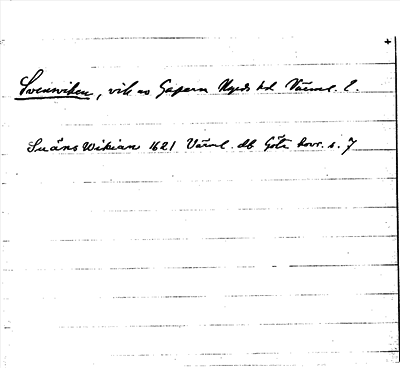 +
Svenwiken, vik av Gapern Nyeds hd Värml. l.
Suäns Wikian 1621 Värml. db Göta hovr. s. 7